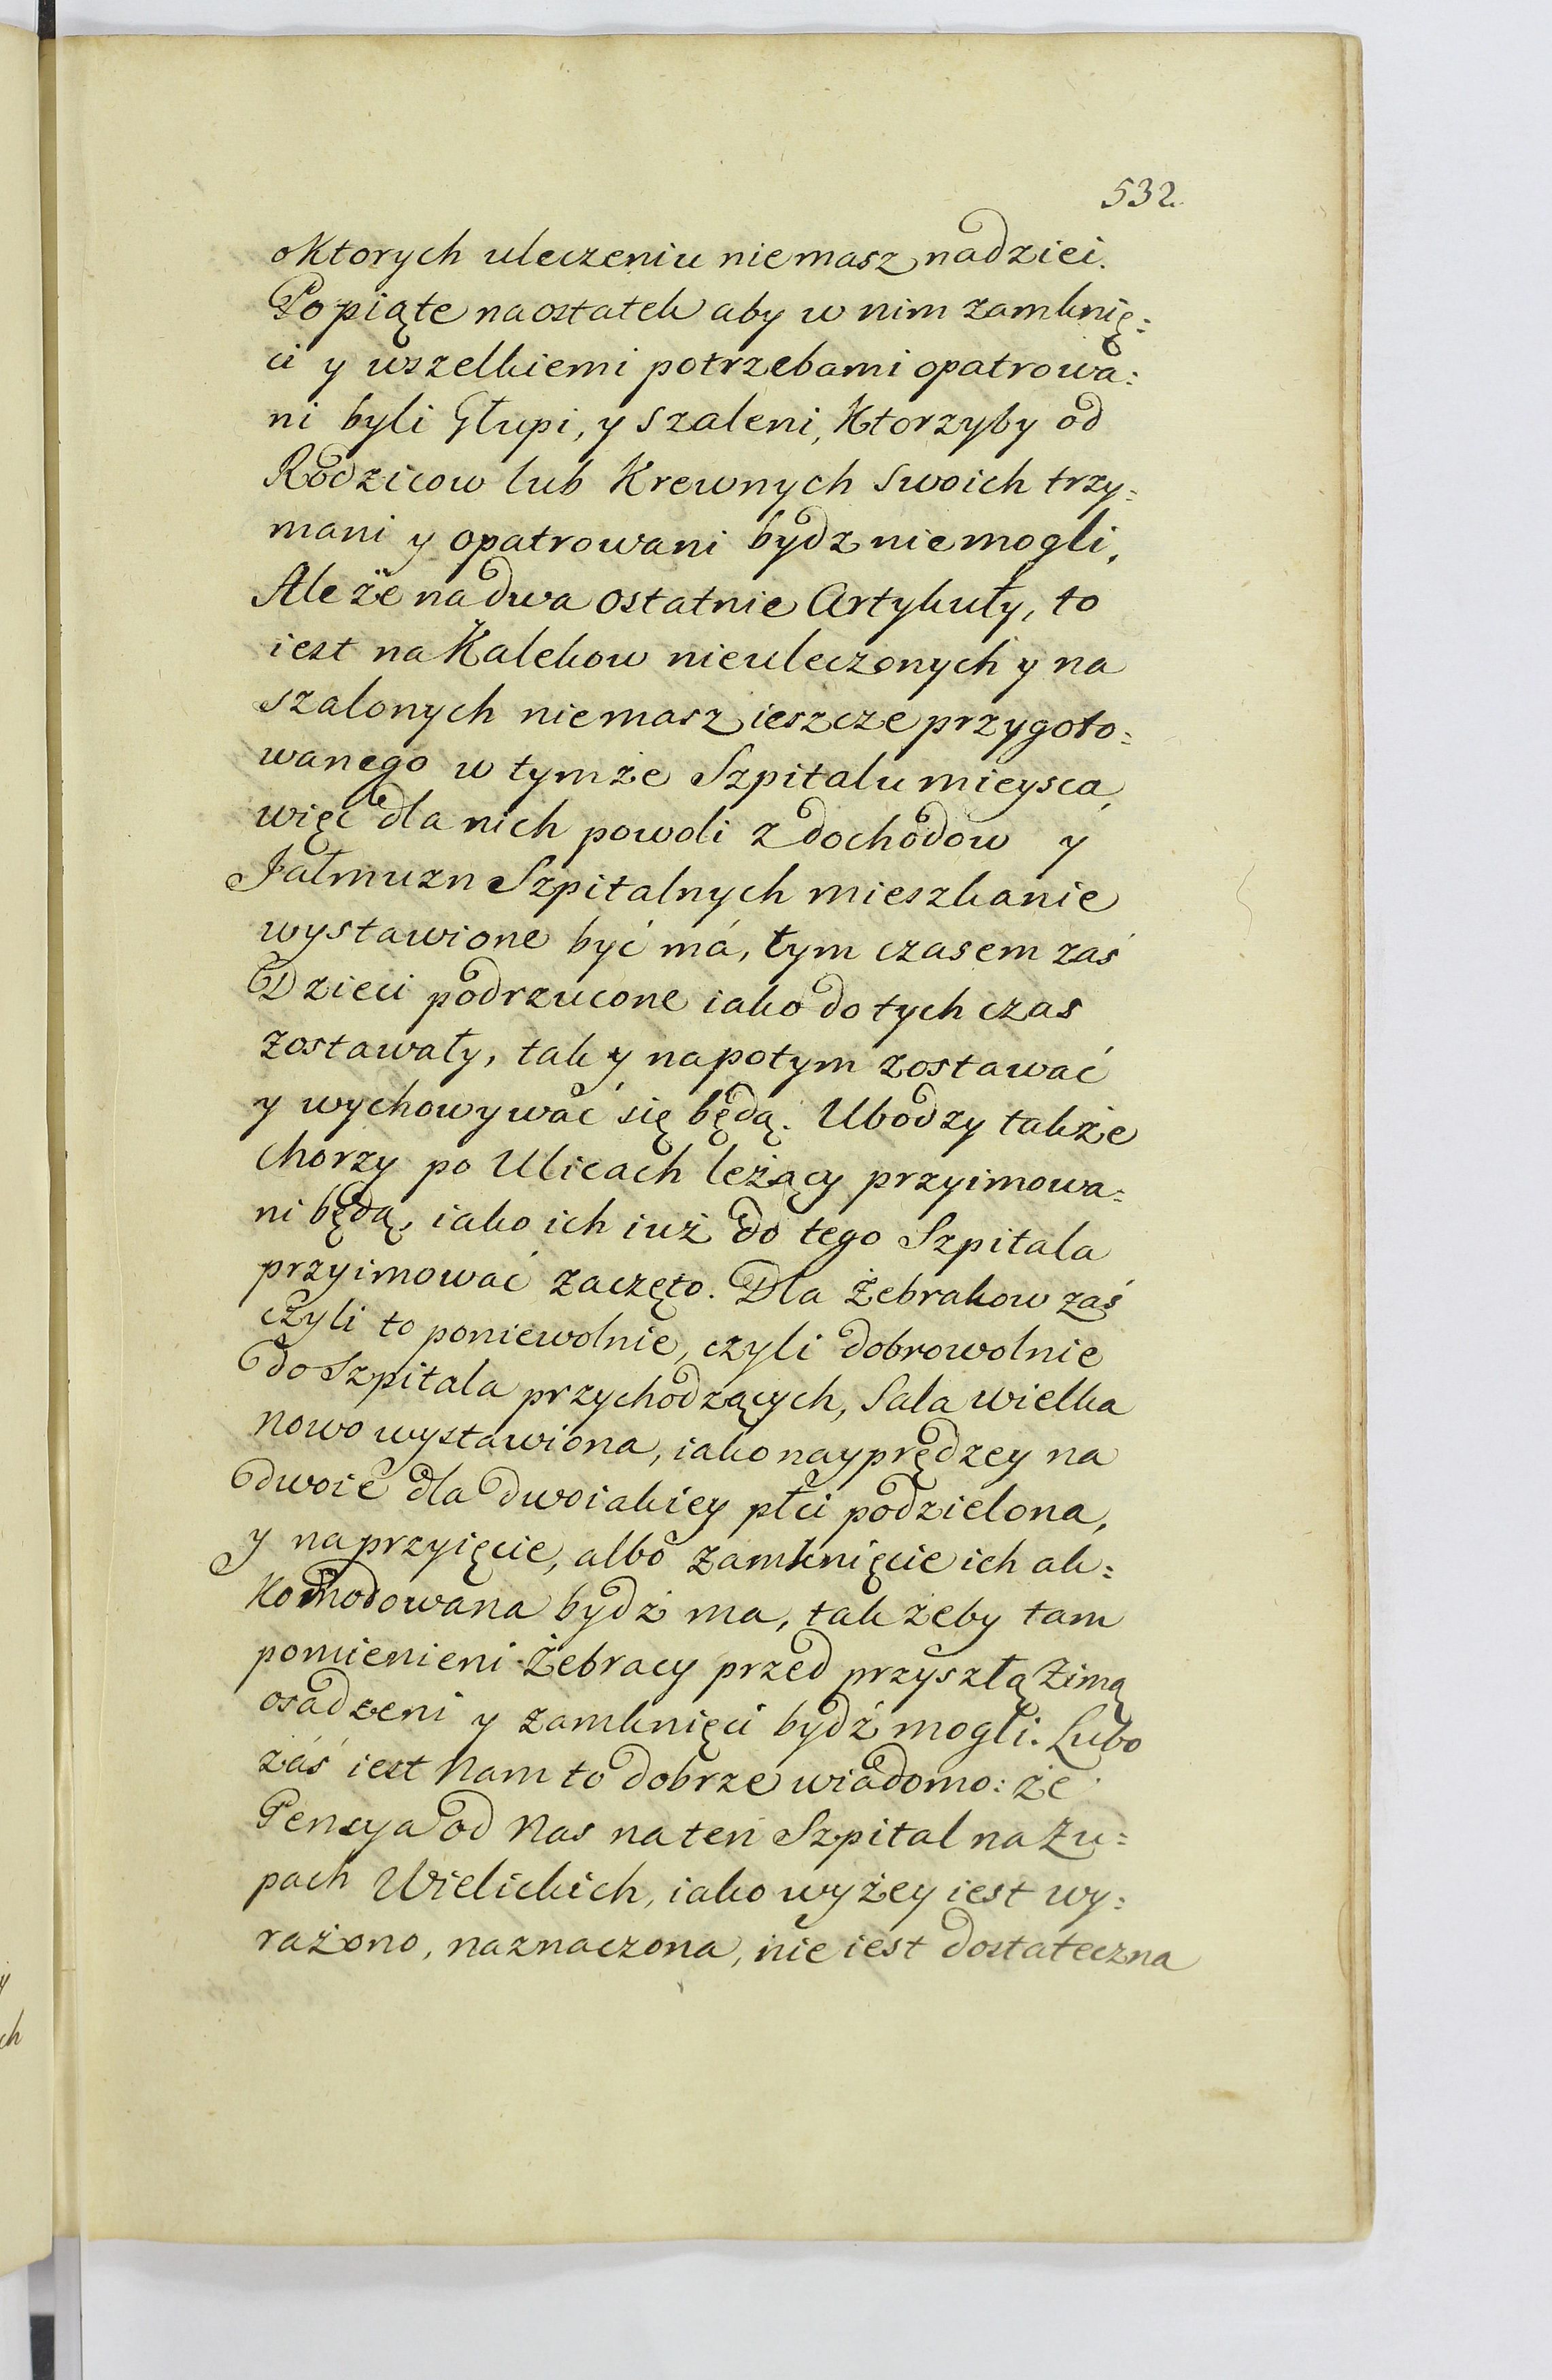 532.
oktorych uleczeniu niemasz nadziei.
Po piąte naostatek aby w nim zamknię:
ci y wszelkiemi potrzebami opatrowa:
ni byli Głupi, y szaleni, Ktorzyby od
Rodzicow lub Krewnych swoich trzy:
mani y opatrowani bydz niemogli,
Ale że na dwa ostatnie Artykuły, to
iest na Kalekow nieuleczonych y na
szalonych niemasz ieszcze przygoto:
wanego w tymże Szpitalu mieysca,
więc dla nich powoli z dochodow y
Jałmuzn Szpitalnych mieszkanie
wystawione być má, tym czasem zaś
Dzieci podrzucone iako do tych czas
zostawały, tak y napotym zostawać
y wychowywać się będą. Ubodzy także
chorzy po Ulicach leżący przyimowa:
ni będą, iako ich iuż do tego Szpitala
przyimować zaczęto. Dla Żebrakow zaś
czyli to poniewolnie, czyli dobrowolnie
do Szpitala przychodzących, Sala wielka
nowo wystawiona, iako nayprędzey na
dwoie dla dwoiakiey płci podzielona,
y na przyięcie, albo zamknięcie ich ak:
komodowana bydź ma, tak żeby tam
pomienieni Żebracy przed przyszłą Zimą
osadzeni y zamknięci bydź mogli. Lubo
zaś iest Nam to dobrze wiadomo: że
Pensya od Nas na ten Szpital na Zu:
pach Wielickich, iako wyżey iest wy:
rażono, naznaczona, nie iest dostateczna
y
ch